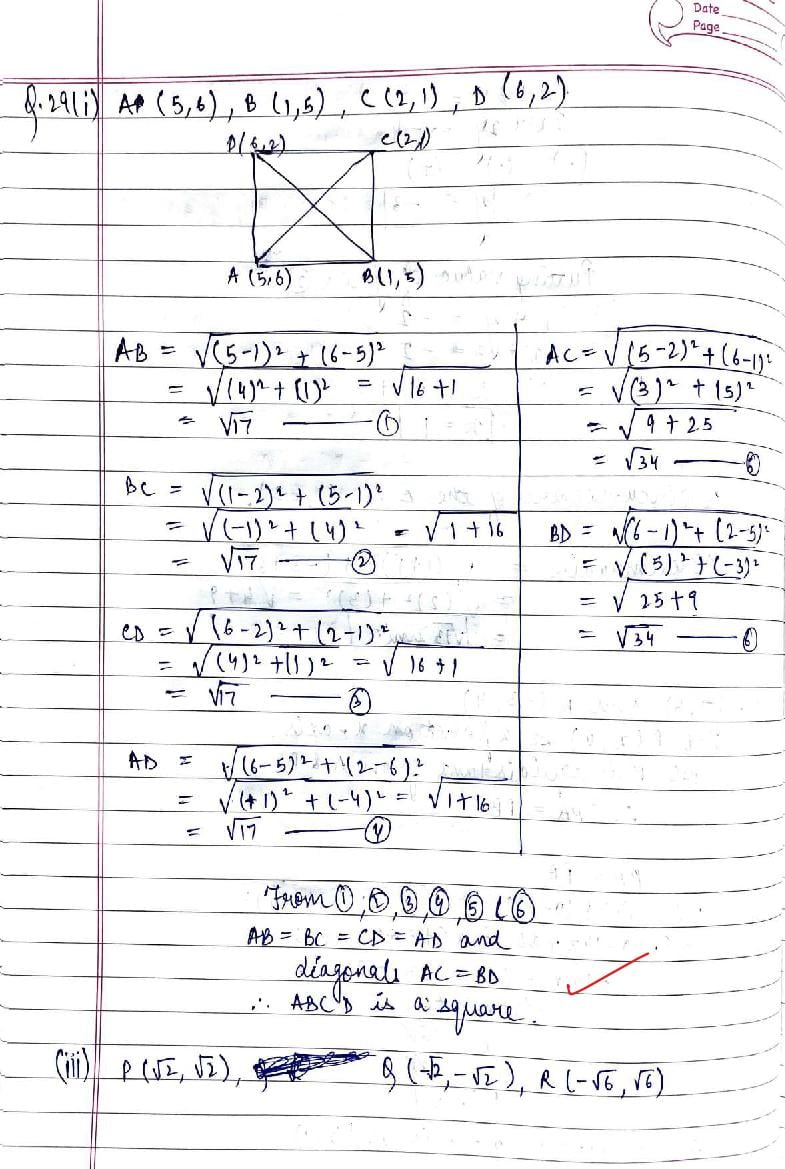 Date
Page
Q.29(i) A (5,6), B (1,5), C (2,1), D (6,2)
D(6,2) C(2,1)
A (5,6) B(1,5)
AB = √(5-1)² + (6-5)²
= √(4)² + (1)² = √16 + 1
= √17 —— ①
BC = √(1-2)² + (5-1)²
= √(-1)² + (4)² = √1 + 16
= √17 —— ②
CD = √(6-2)² + (2-1)²
= √(4)² + (1)² = √16 + 1
= √17 —— ③
AD = √(6-5)² + (2-6)²
= √(+1)² + (-4)² = √1 + 16
= √17 —— ④
AC = √(5-2)² + (6-1)²
= √(3)² + (5)²
= √9 + 25
= √34 ——
BD = √(6-1)² + (2-5)²
= √(5)² + (-3)²
= √25 + 9
= √34 —— ⑥
From ①, ②, ③, ④, ⑤ & ⑥
AB = BC = CD = AD and
diagonals AC = BD
∴ ABCD is a square.
(iii) P (√2, √2), Q (-√2, -√2), R (-√6, √6)